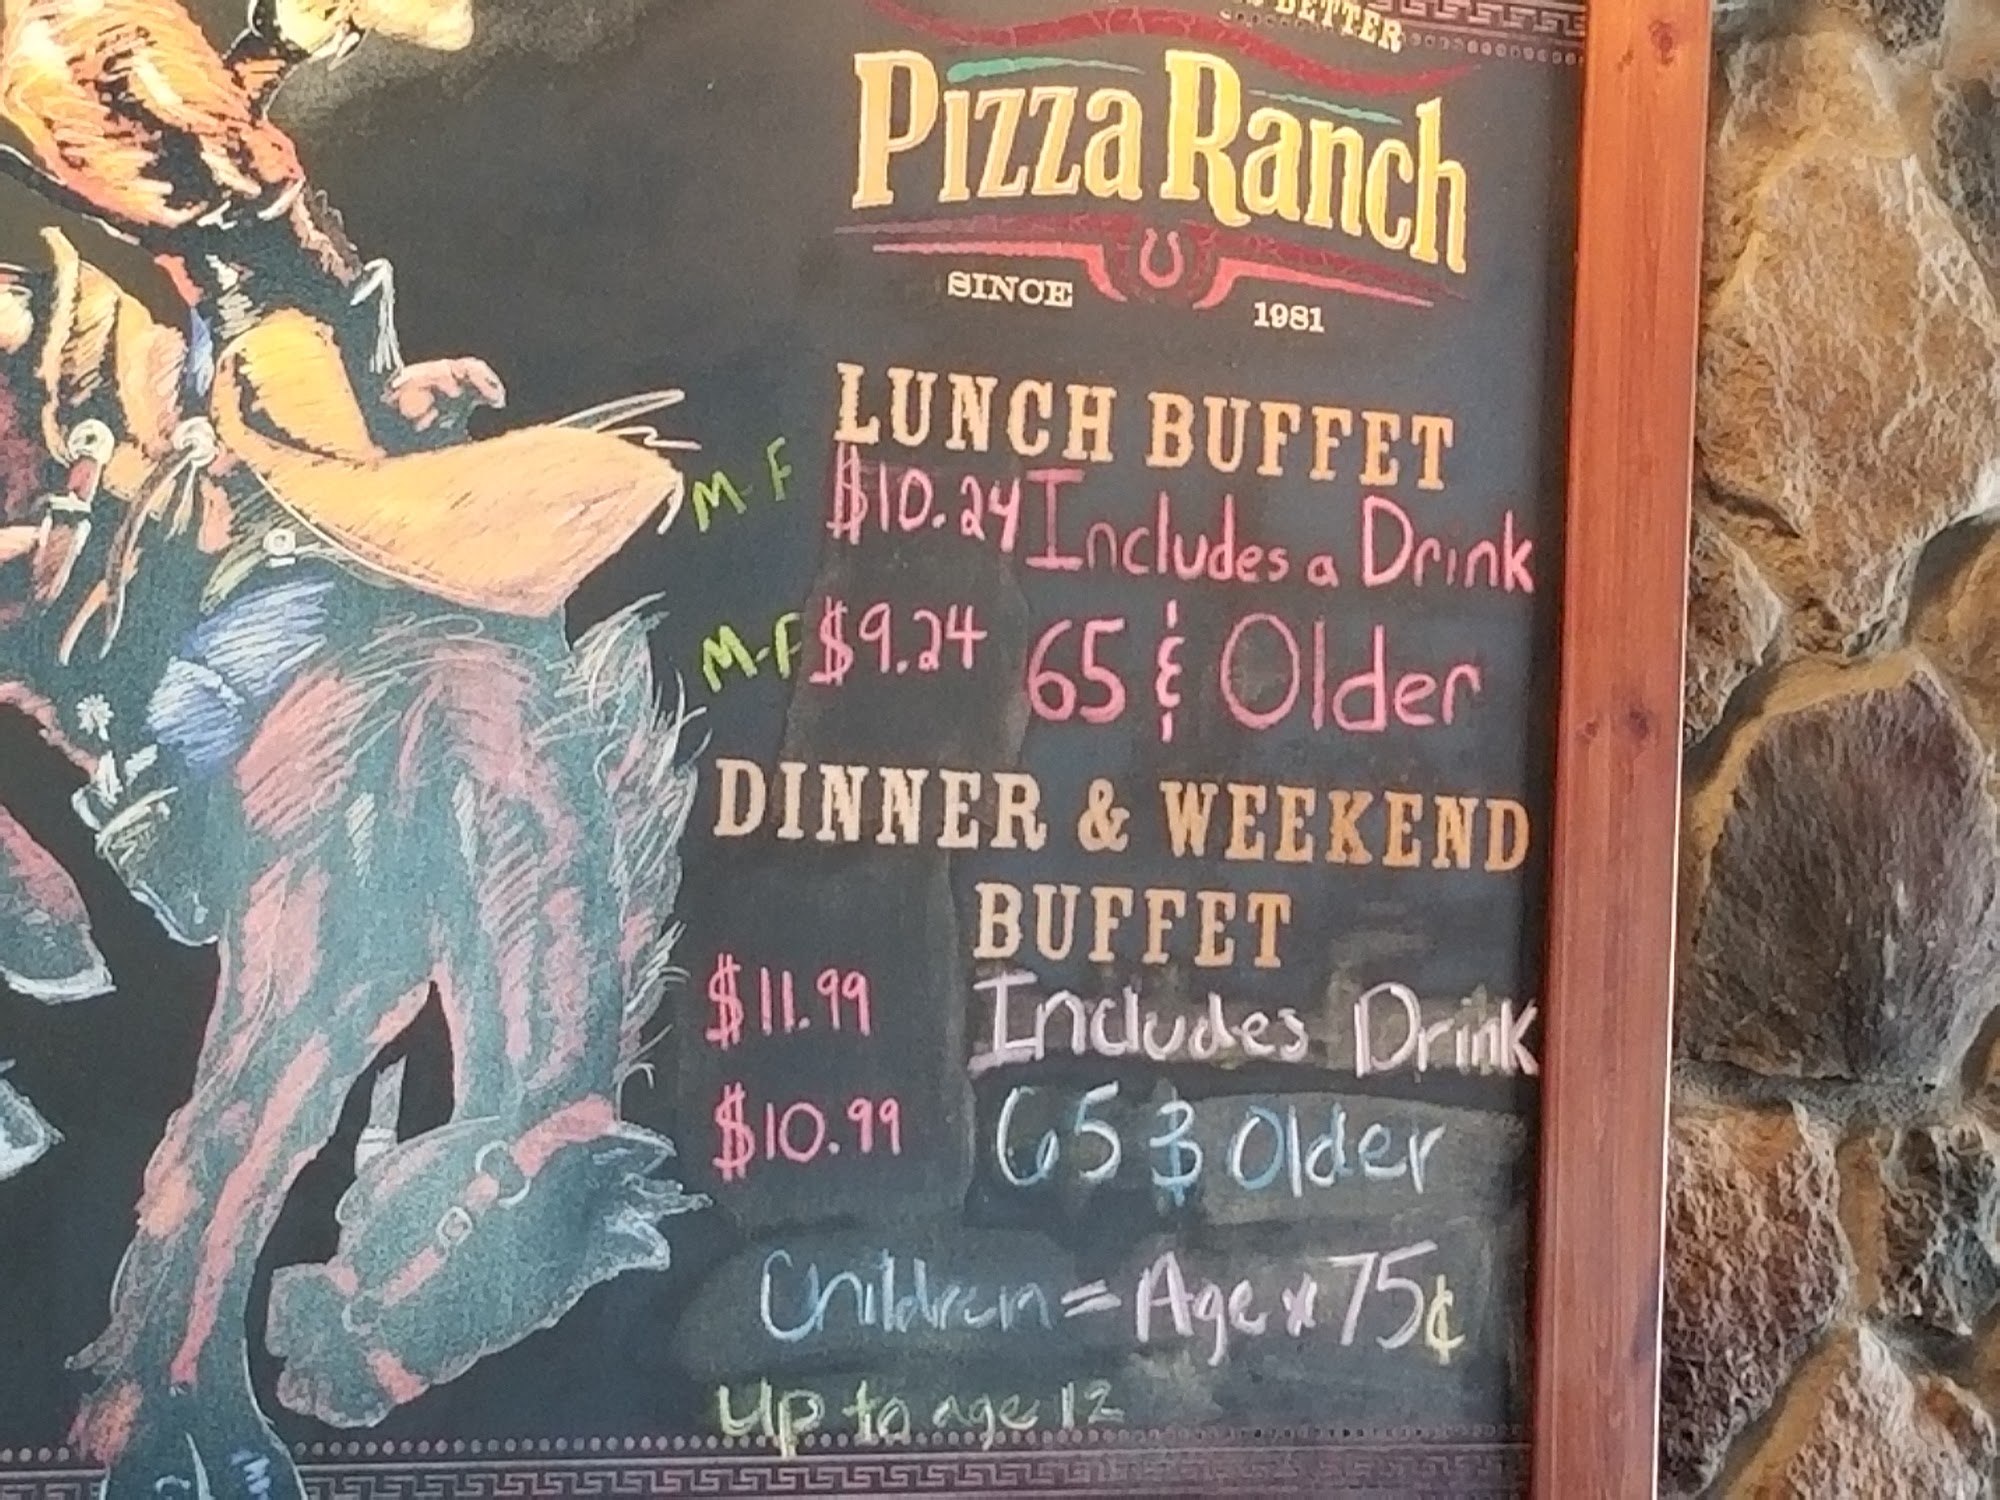 BETTER
Pizza Ranch
SINCE 1981
LUNCH BUFFET
M-F $10.24 Includes a Drink
M-F $9.24 65 & Older
DINNER & WEEKEND
BUFFET
$11.99 Includes Drink
$10.99 65 & Older
Children = Age x 75¢
Up to age 12